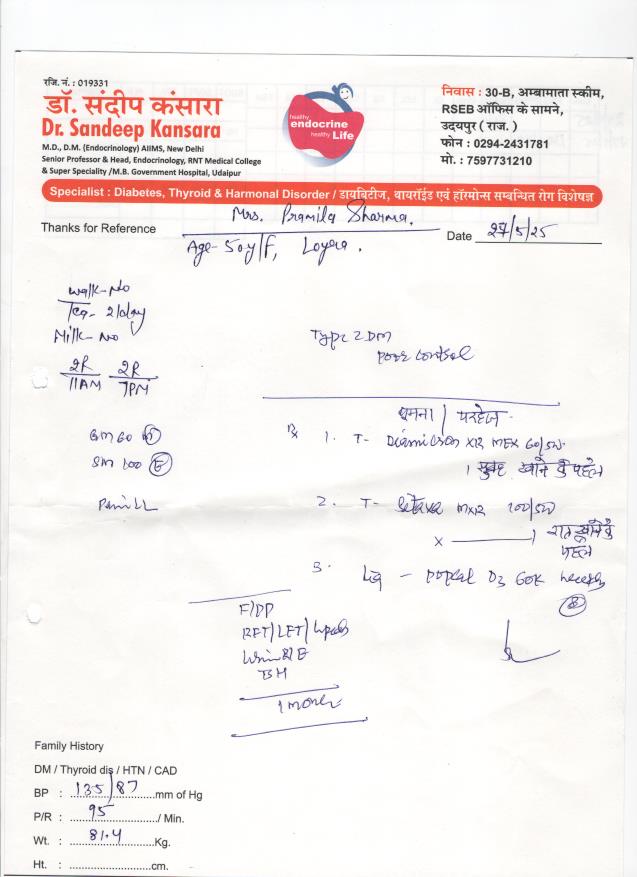 रजि. नं. : 019331
डॉ. संदीप कंसारा
Dr. Sandeep Kansara
M.D., D.M. (Endocrinology) AIIMS, New Delhi
Senior Professor & Head, Endocrinology, RNT Medical College
& Super Speciality /M.B. Government Hospital, Udaipur
healthy
endocrine
healthy Life
निवास : 30-B, अम्बामाता स्कीम,
RSEB ऑफिस के सामने,
उदयपुर ( राज. )
फोन : 0294-2431781
मो. : 7597731210
Specialist : Diabetes, Thyroid & Harmonal Disorder / डायबिटीज, थायरॉईड एवं हॉरमोन्स सम्बन्धित रोग विशेषज्ञ
Thanks for Reference Mrs. Pramila Sharma.
Age- 50y/F, Loyera.
Date 27/5/25
Walk- No
Tea- 2/day
Milk- No
2R 2R
11AM 7PM
GM 60
SM 100 E
Type 2 DM
poor control
घूमना / परहेज
Rx 1. T- XR MEX 60/500
1 सुबह खाने के पहले
2. T- MXR 100/500
x 1 रात खाने के पहले
3. Liq - D3 60K
8
F/PP
RFT/LFT/Lipids
Urine R/E
1 month
Family History
DM / Thyroid dis / HTN / CAD
BP : 135/87 mm of Hg
P/R : 95 / Min.
Wt. : 81.4 Kg.
Ht. : cm.